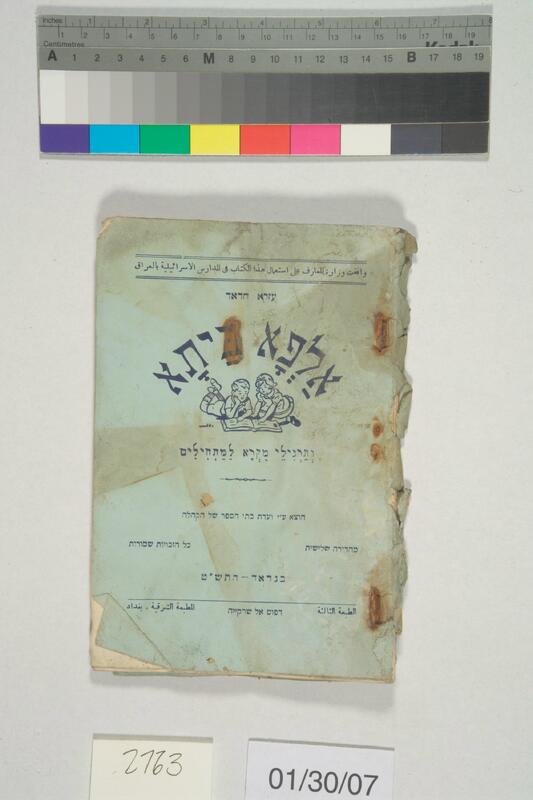 inches 1 2 3 4 5 6 7 8
Centimetres 1 2 3 4 5 6 7 8 9 10 11 12 13 14 15 16 17 18 19
Kodak
A 1 2 3 4 5 6 M 8 9 10 11 12 13 14 15 B 17 18 19
وافقت وزارة المعارف على استعمال هذا الكتاب في المدارس الاسرائيلية بالعراق
עזרא חדאד
אַלְפָא בֵּיתָא
וְתַרְגִילֵי מִקְרָא לַמַתְחִילִים
הוצא ע״י ועדת בתי הספר של הקהלה
מהדורה שלישית
כל הזכויות שמורות
בגדאד – התש״ט
الطبعة الثالثة
דפוס אל שרקייה
المطبعة الشرقية ـ بغداد
2763
01/30/07